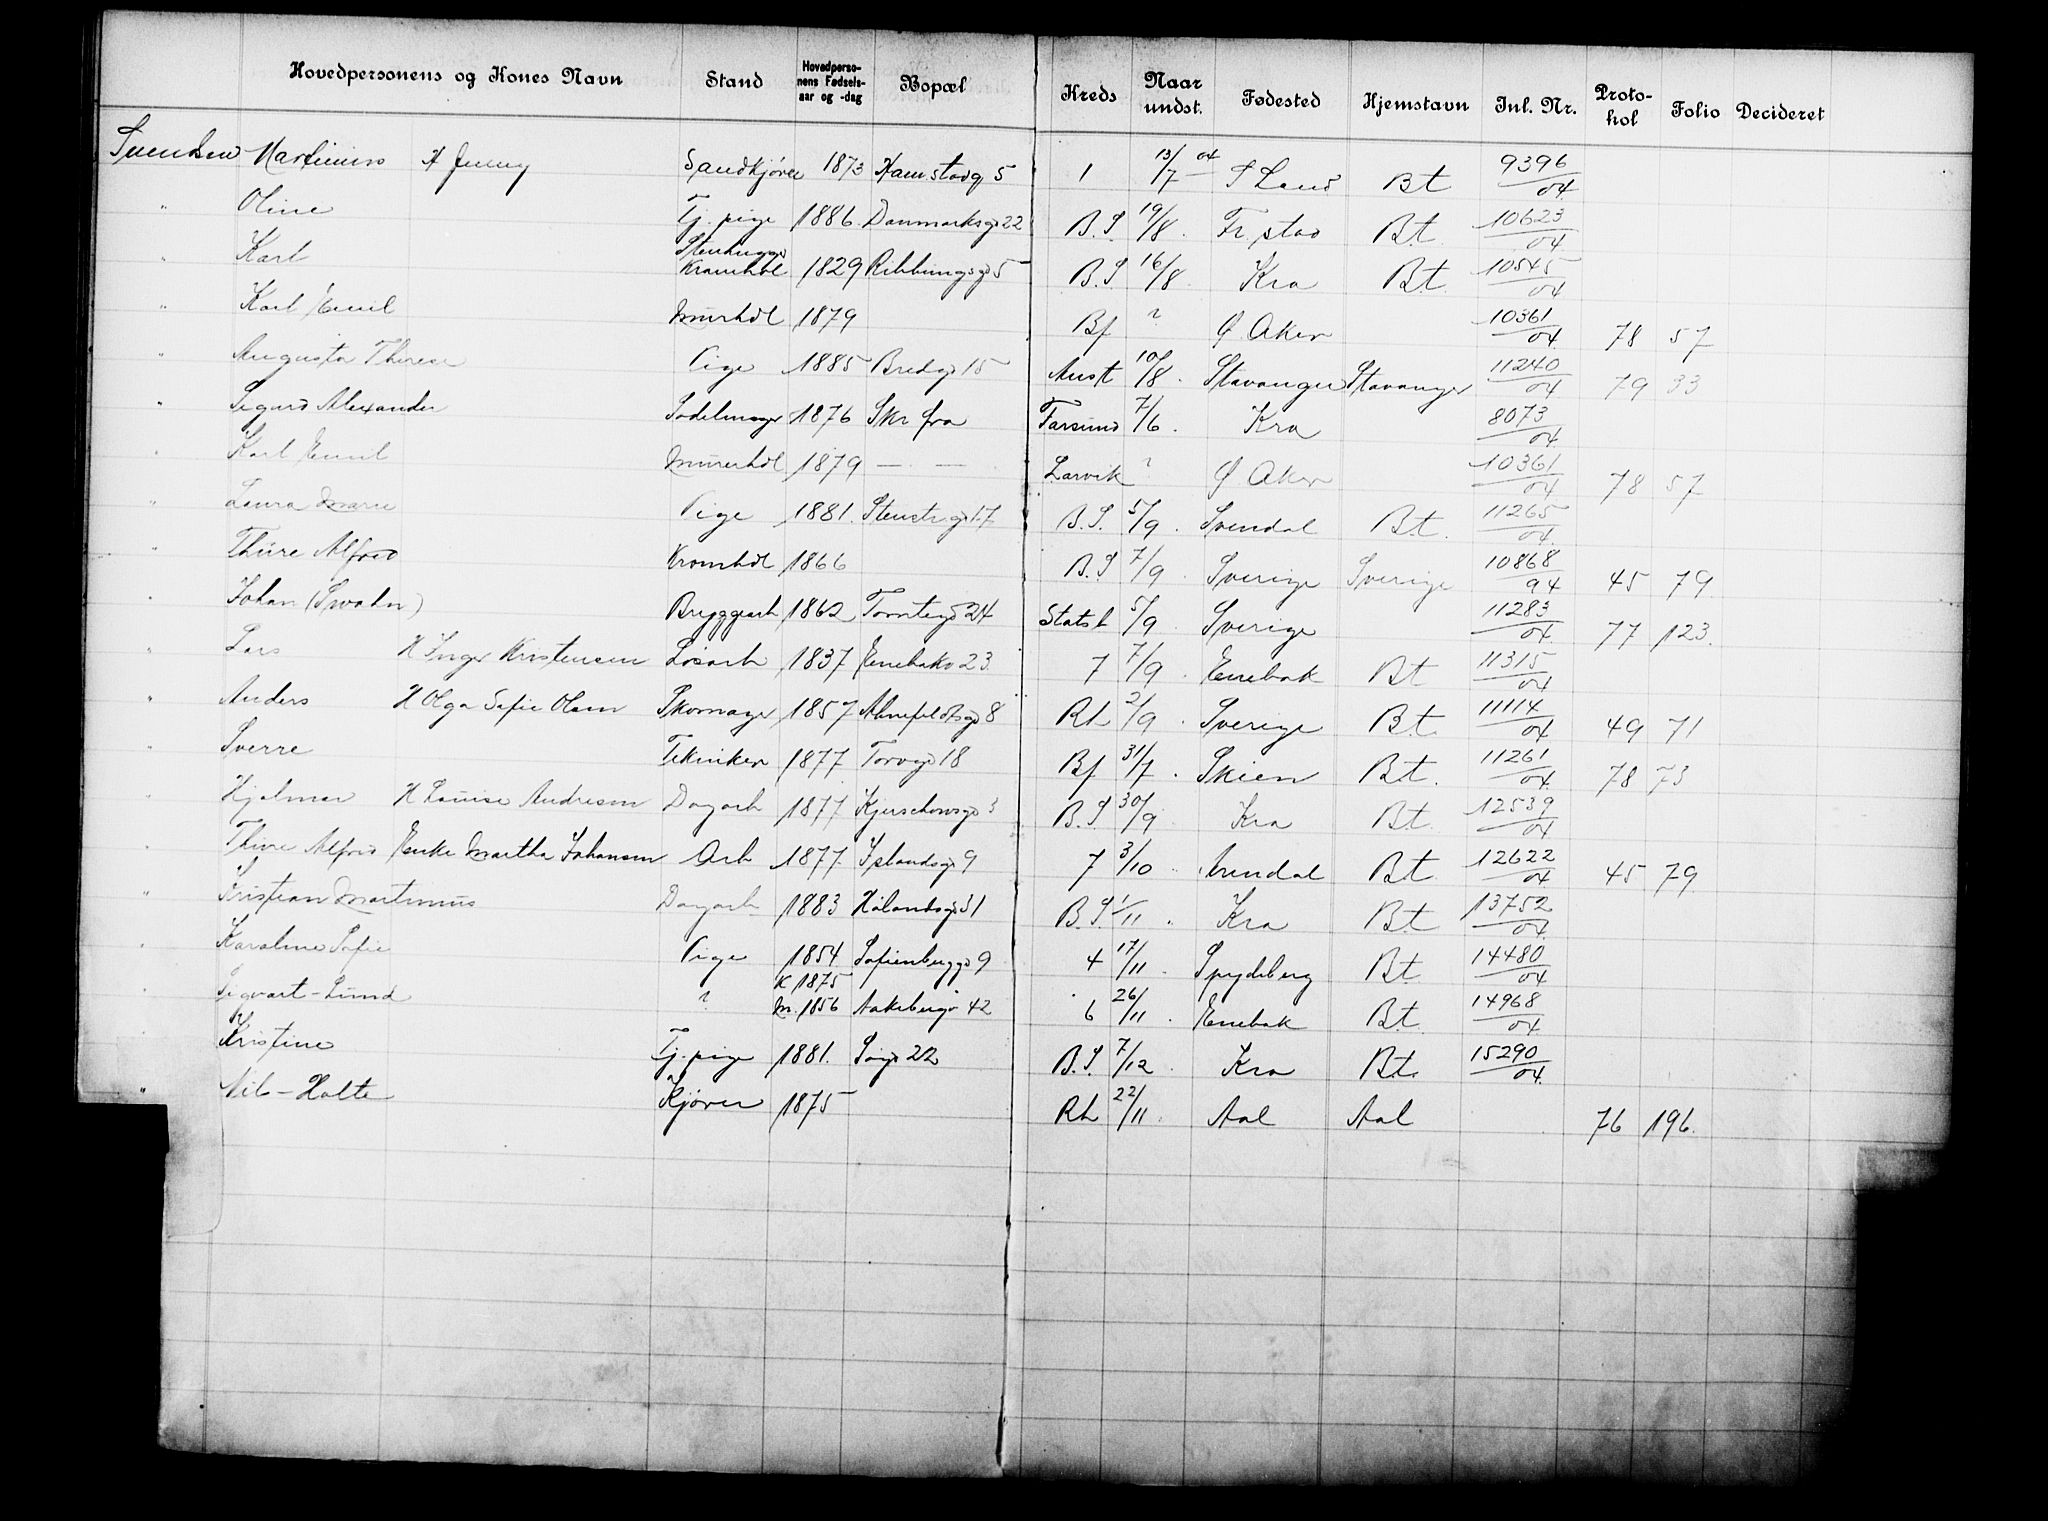 Hovedpersonens og Kones Navn Stand Hovedperso-nens Fødsels-aar og -dag Bopæl Kreds Naar undst. Fødested Hjemstavn Inl. Nr. Proto-kol Folio Decideret
Svendsen Martinius H Jenny Sandkjører 1873 Hamstavg 5 1 13/7 04 S Land Bt 9396/04
" Oline Tj. pige 1886 Danmarksgd 22 B.S 19/8 Fr. stad Bt 10623/04
" Karl Stenhugger Kramhdl 1829 Ribbungsgd 5 B.S 16/8 Kra Bt 10545/04
" Karl Emil Murhdl 1879 Bf ? Ø Aker 10361/04 78 57
" Augusta Therese Pige 1885 Bredgd 15 Aust 10/8 Stavanger Stavanger 11240/04 79 33
" Sigurd Alexander Sadelmager 1876 Skr fra Farsund 7/6 Kra 8073/04
" Karl Emil Murerhdl 1879 — — Larvik ? Ø Aker 10361/04 78 57
" Laura Marie Pige 1881 Stenstrgd 17 B.S. 5/9 Svendal Bt 11265/04
" Thure Alfred Kramhdl 1866 B.S 7/9 Sverige Sverige 10868/94 45 79
" Johan (Swahn) Bryggearb 1862 Tomtegd 24 Statsb 5/9 Sverige 11283/04 77 123
" Lars H Inger Kristensen Løsarb 1837 Enebakv 23 7 7/9 Enebak Bt 11315/04
" Anders H Olga Sofie Olsen Skomager 1857 Ahnefeldtsgd 8 Rh 2/9 Sverige Bt 11114/04 49 71
" Sverre Tekniker 1877 Torvgd 18 Bf 31/7 Skien Bt 11261/04 78 73
" Hjalmar H Louise Andresen Dagarb 1877 Kjerschowsgd 3 B.S 30/9 Kra Bt 12539/04
" Thure Alfred Enke Martha Johansen Arb 1877 Islandsgd 9 7 3/10 Arendal Bt 12622/04 45 79
" Kristian Martinius Dagarb 1883 Hølandsgd 31 B.S 1/11 Kra Bt 13752/04
" Karoline Sofie Pige 1854 Sofienberggd 9 4 17/11 Spydeberg Bt 14480/04
" Sigvart-Lund ? K 1875 M. 1856 Aakebergv 42 6 26/11 Enebak Bt 14968/04
" Kristine Tj. pige 1881 22 B.S. 7/12 Kra Bt 15290/04
" Nils-Holte Kjører 1875 Rh 22/11 Aal Aal 76 196